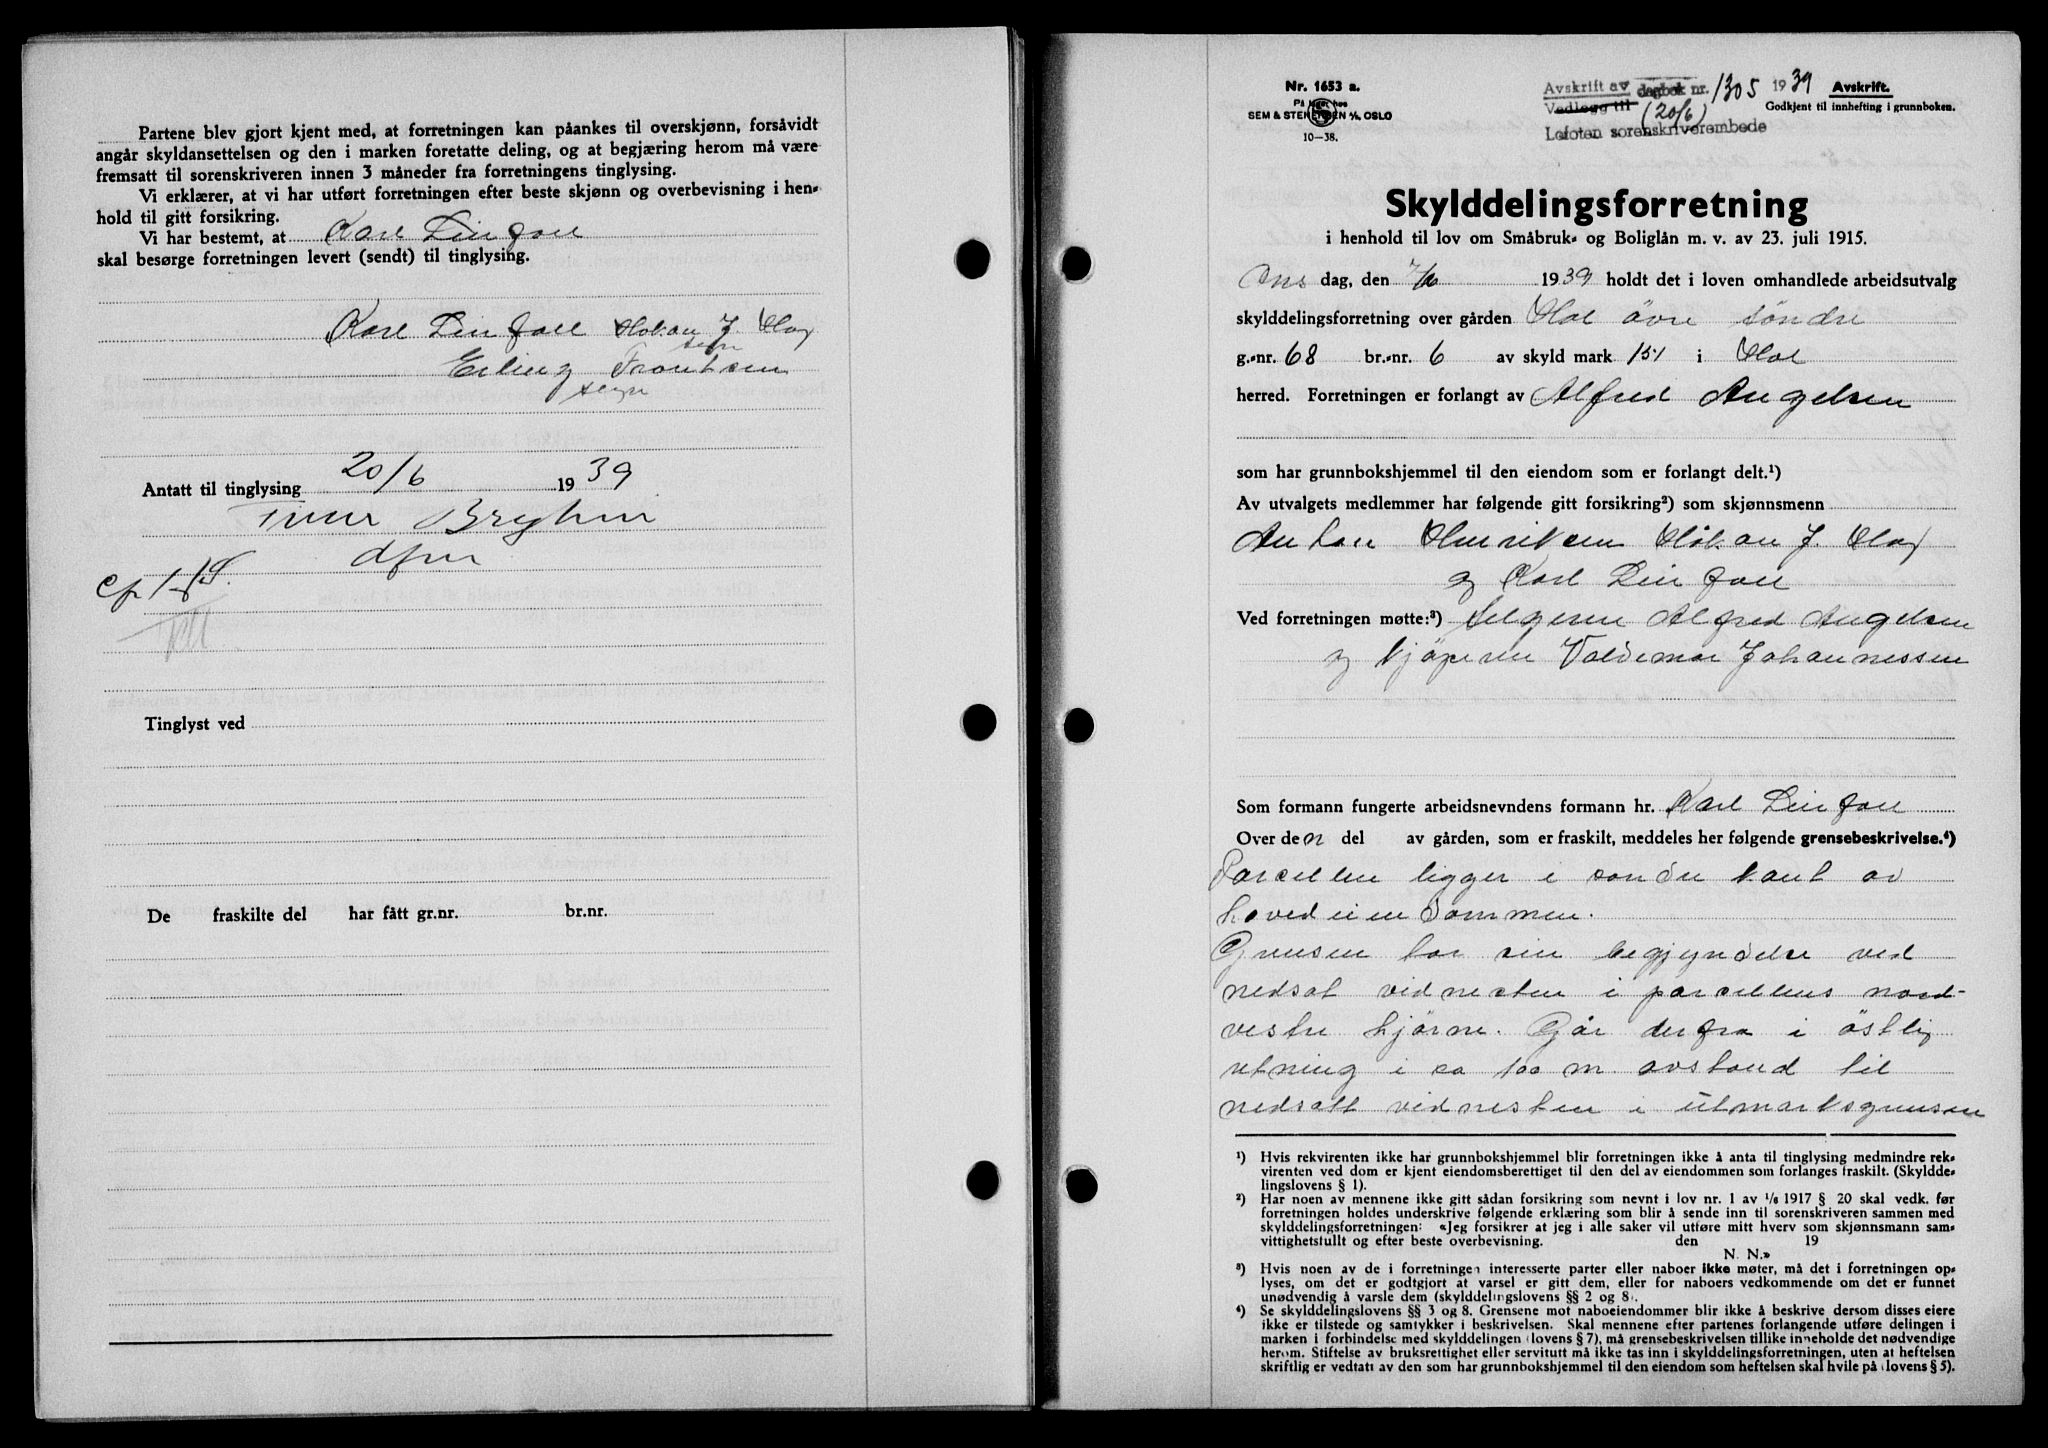 Partene blev gjort kjent med, at forretningen kan påankes til overskjønn, forsåvidt
angår skyldansettelsen og den i marken foretatte deling, og at begjæring herom må være
fremsatt til sorenskriveren innen 3 måneder fra forretningens tinglysing.
Vi erklærer, at vi har utført forretningen efter beste skjønn og overbevisning i hen-
hold til gitt forsikring.
Vi har bestemt, at Karl
skal besørge forretningen levert (sendt) til tinglysing.
Karl Håkon J. Hag
sign
Erling Frantsen
sign
Antatt til tinglysing 20/6 1939
dfm
Tinglyst ved
De fraskilte del har fått gr.nr. br.nr.
Nr. 1653 a.
På lager hos
SEM & STENERSEN A/S, OSLO
10—38.
Avskrift av dagbok nr. 1305 1939 Avskrift.
Vedlegg til (20/6) Godkjent til innhefting i grunnboken.
Lofoten sorenskriverembede
Skylddelingsforretning
i henhold til lov om Småbruk- og Boliglån m. v. av 23. juli 1915.
Ons dag, den 7/6 1939 holdt det i loven omhandlede arbeidsutvalg
skylddelingsforretning over gården Hol övre söndre
g.-nr. 68 br.-nr. 6 av skyld mark 1.51 i Hol
herred. Forretningen er forlangt av Alfred Angelsen
som har grunnbokshjemmel til den eiendom som er forlangt delt.¹)
Av utvalgets medlemmer har følgende gitt forsikring²) som skjønnsmenn
Anton Henriksen Håkon J. Hag
og Karl
Ved forretningen møtte:³) Selgeren Alfred Angelsen
og kjöperen Valdemar Johannessen
Som formann fungerte arbeidsnevndens formann hr. Karl
Over den del av gården, som er fraskilt, meddeles her følgende grensebeskrivelse.⁴)
Parsellen ligger i söndre kant av
hovedeiendommen.
Grensen har sin begjyndelse ved
nedsat vidnesten i parsellens nord-
vestre hjörne. Går derfra i östlig
retning i ca 100 m. avstand til
nedsatt vidnesten i utmarksgrensen
¹) Hvis rekvirenten ikke har grunnbokshjemmel blir forretningen ikke å anta til tinglysing medmindre rek-
virenten ved dom er kjent eiendomsberettiget til den del av eiendommen som forlanges fraskilt. (Skyldde-
lingslovens § 1).
²) Har noen av mennene ikke gitt sådan forsikring som nevnt i lov nr. 1 av 1/6 1917 § 20 skal vedk. før
forretningen holdes underskrive følgende erklæring som blir å sende inn til sorenskriveren sammen med
skylddelingsforretningen: «Jeg forsikrer at jeg i alle saker vil utføre mitt hverv som skjønnsmann sam-
vittighetsfullt og efter beste overbevisning. den 19
N. N.»
³) Hvis noen av de i forretningen interesserte parter eller naboer ikke møter, må det i forretningen op-
lyses, om det er godtgjort at varsel er gitt dem, eller for naboers vedkommende om det er funnet
unødvendig å varsle dem (skylddelingslovens §§ 2 og 8).
⁴) Se skylddelingslovens §§ 3 og 8. Grensene mot naboeiendommer blir ikke å beskrive dersom disses eiere
ikke er tilstede og samtykker i beskrivelsen. Skal mennene efter partenes forlangende utføre delingen i
marken i forbindelse med skylddelingen (lovens § 7), må grensebeskrivelsen tillike inneholde det nødvendige
herom. Stiftelse av bruksrettighet eller servitutt må ikke tas inn i skylddelingsforretningen, uten at heftelsen
skriftlig er vedtatt av den som har grunnbokshjemmel til den eiendom som heftelsen skal hvile på (lovens § 5).